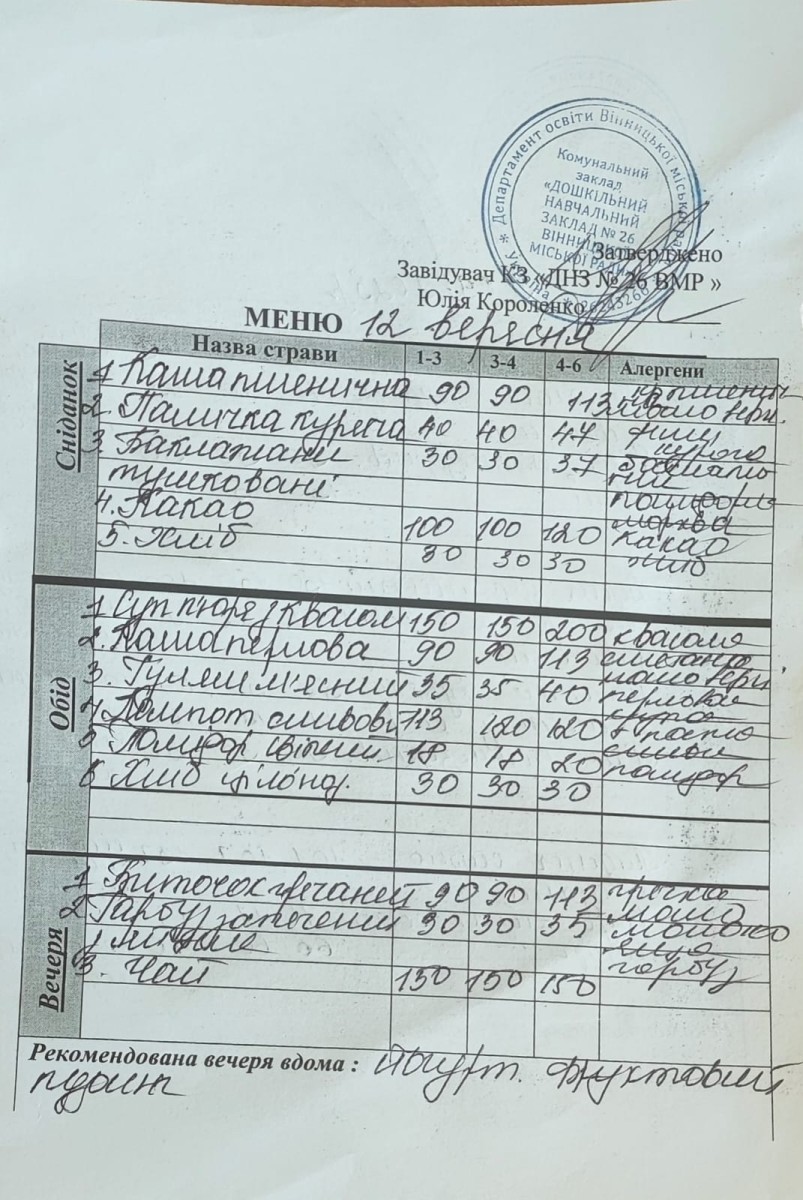 * Департамент освіти Вінницької міської ради *
Україна
Комунальний
заклад
«ДОШКІЛЬНИЙ
НАВЧАЛЬНИЙ
ЗАКЛАД № 26
ВІННИЦЬКОЇ
МІСЬКОЇ РАДИ»
Затверджено
Завідувач КЗ «ДНЗ № 26 ВМР »
Юлія Короленко
МЕНЮ 12 вересня
Назва страви 1-3 3-4 4-6 Алергени
Сніданок
1. Каша пшенична 90 90 113
2. Паличка куряча 40 40 47 філе
3. Баклажани 30 30 37
тушковані
4. Какао 100 100 120 морква какао
5. Хліб 30 30 30 хліб
Обід
1 Суп пюре з квасолі 150 150 200 квасоля
2. Каша перлова 90 90 113 сметана
3. Гуляш м'ясний 35 35 40
4 Компот сливовий 113 120 120
5 Помідор свіжий 18 18 20 помідор
6 Хліб цілонд. 30 30 30
Вечеря
1 Биточок гречаний 90 90 113 гречка
2 Гарбуз запечений 30 30 35 молоко
яйце
3. Чай 150 150 150 гарбуз
Рекомендована вечеря вдома : Йогурт. Фруктовий
пудинг